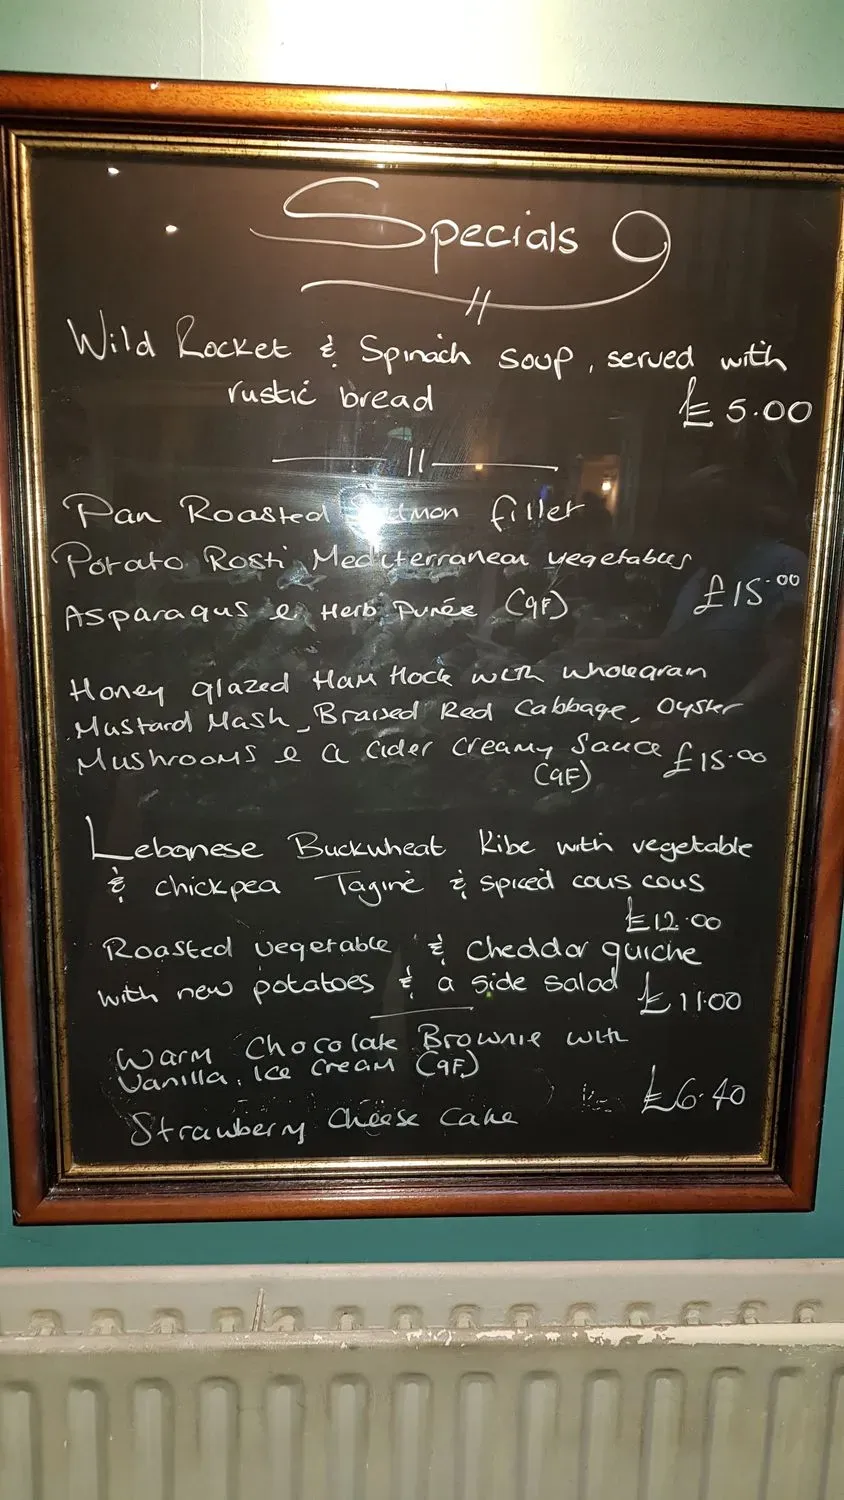 Specials
Wild Rocket & Spinach soup, served with
rustic bread £5.00
Pan Roasted Salmon fillet
Potato Rosti, Mediterranean vegetables
Asparagus & Herb Purée (GF) £15.00
Honey glazed Ham Hock with wholegrain
Mustard Mash, Braised Red Cabbage, Oyster
Mushrooms & a Cider Creamy Sauce £15.00
(GF)
Lebanese Buckwheat Kibe with vegetable
& chickpea Tagine & spiced cous cous
£12.00
Roasted vegetable & cheddar quiche
with new potatoes & a side salad £11.00
Warm Chocolate Brownie with
Vanilla Ice Cream (GF)
£6.40
Strawberry Cheese Cake